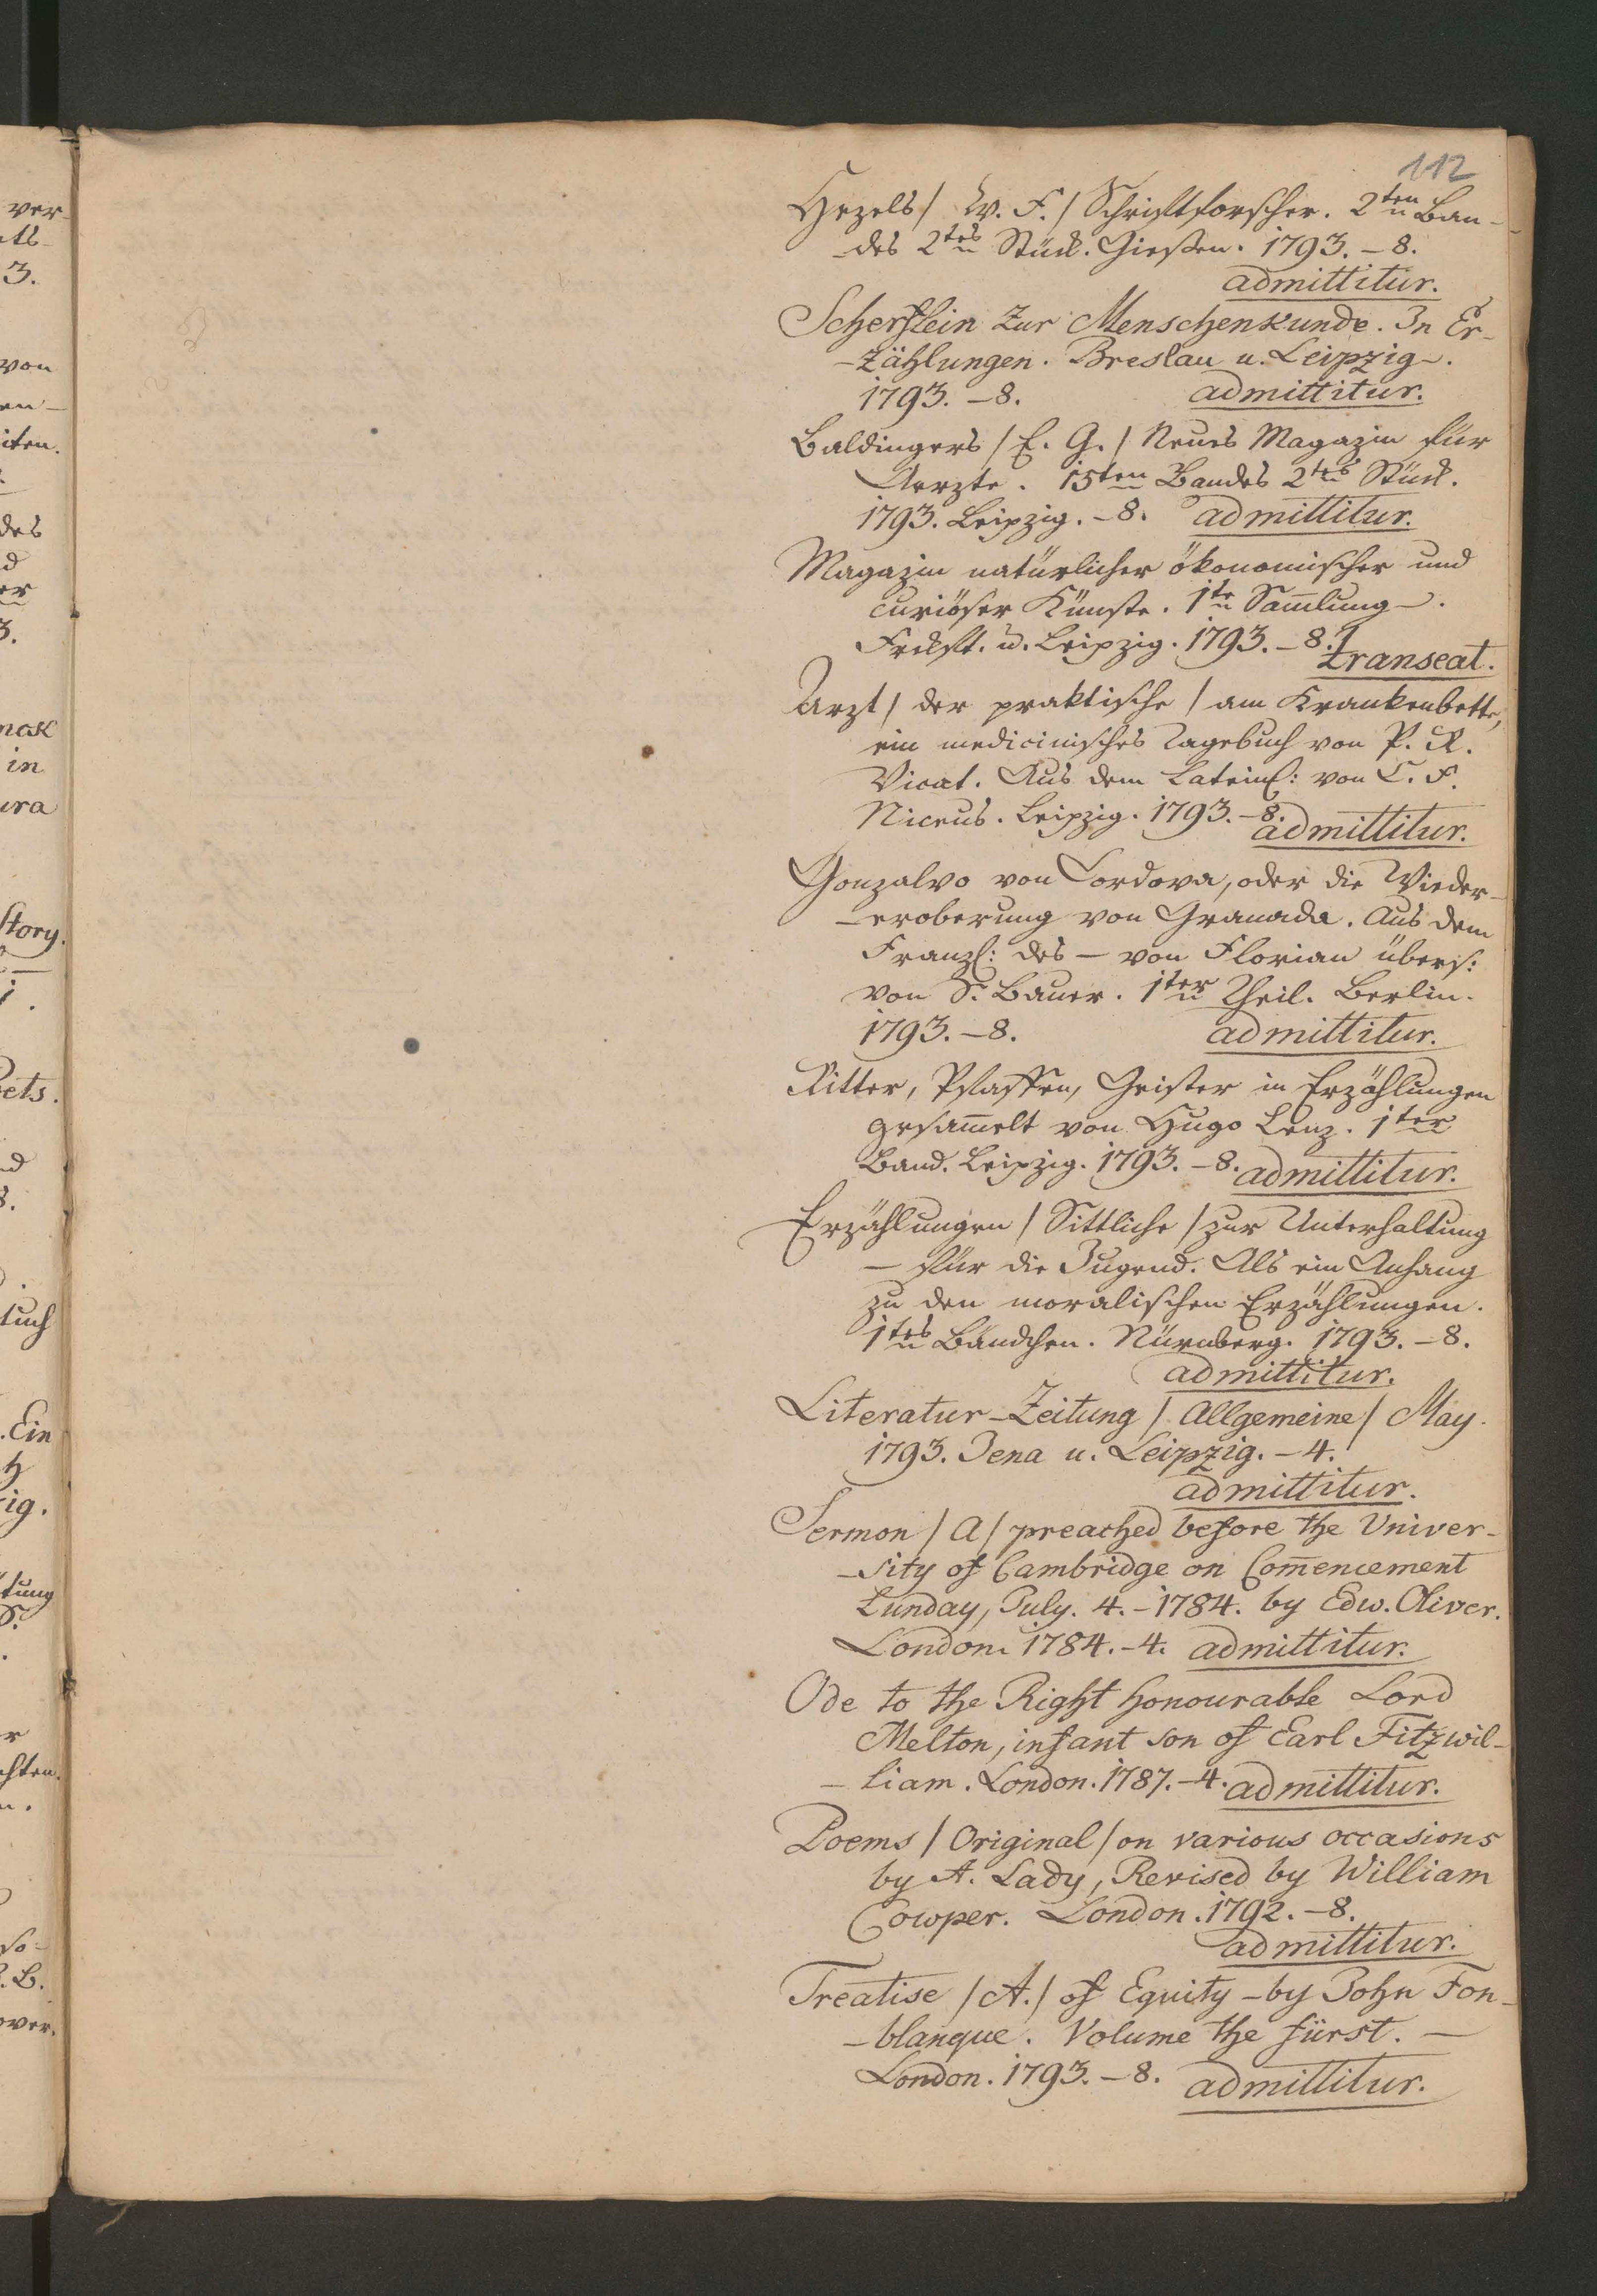 112
Hezels / W. F. / Schriftforscher. 2ten Ban-
-des 2tes Stück. Giessen. 1793. – 8.
admittitur.
Scherflein zur Menschenkunde. In Er-
-zählungen. Breslau u. Leipzig –.
1793. – 8. admittitur.
Baldingers / E. G. / Neues Magazin für
Aerzte. 15ten Bandes 2tes Stück.
1793. Leipzig. – 8. admittitur.
Magazin natürlicher ökonomischer und
curiöser Künste. 1te Sam̄lung –.
Frckft. u. Leipzig. 1793. – 8.
transeat.
Arzt / der praktische / am Krankenbette,
ein medicinisches Tagebuch von P. R.
Vicat. Aus dem Lateins: von C. F.
Niceus. Leipzig. 1793. – 8.
admittitur.
Gonzalvo von Cordova, oder die Wieder-
-eroberung von Granada. Aus dem
Franzs: des – von Florian übers:
von S. Bauer. 1ter Theil. Berlin.
1793. – 8. admittitur.
Ritter, Pfaffen, Geister in Erzählungen
gesam̄elt von Hugo Lenz. 1ter
Band. Leipzig. 1793. – 8. admittitur.
Erzählungen / Sittliche / zur Unterhaltung
– für die Jugend. Als ein Anhang
zu den moralischen Erzählungen.
1tes Bändchen. Nürnberg. 1793. – 8.
admittitur.
Literatur-Zeitung / Allgemeine / May.
1793. Jena u. Leipzig. – 4.
admittitur.
Sermon / A / preached before the Univer-
-sity of Cambridge on Com̄encement
Sunday, July. 4. – 1784. by Edw. Oliver.
London. 1784. – 4. admittitur.
Ode to the Right honourable Lord
Melton, infant son of Earl Fitzwil-
– liam. London. 1787. – 4. admittitur.
Poems / Original / on various occasions
by A. Lady, Revised by William
Cowper. London. 1792. – 8.
admittitur.
Treatise / A. / of Equity – by John Fon-
-blanque. Volume the fürst. –
London. 1793. – 8. admittitur.